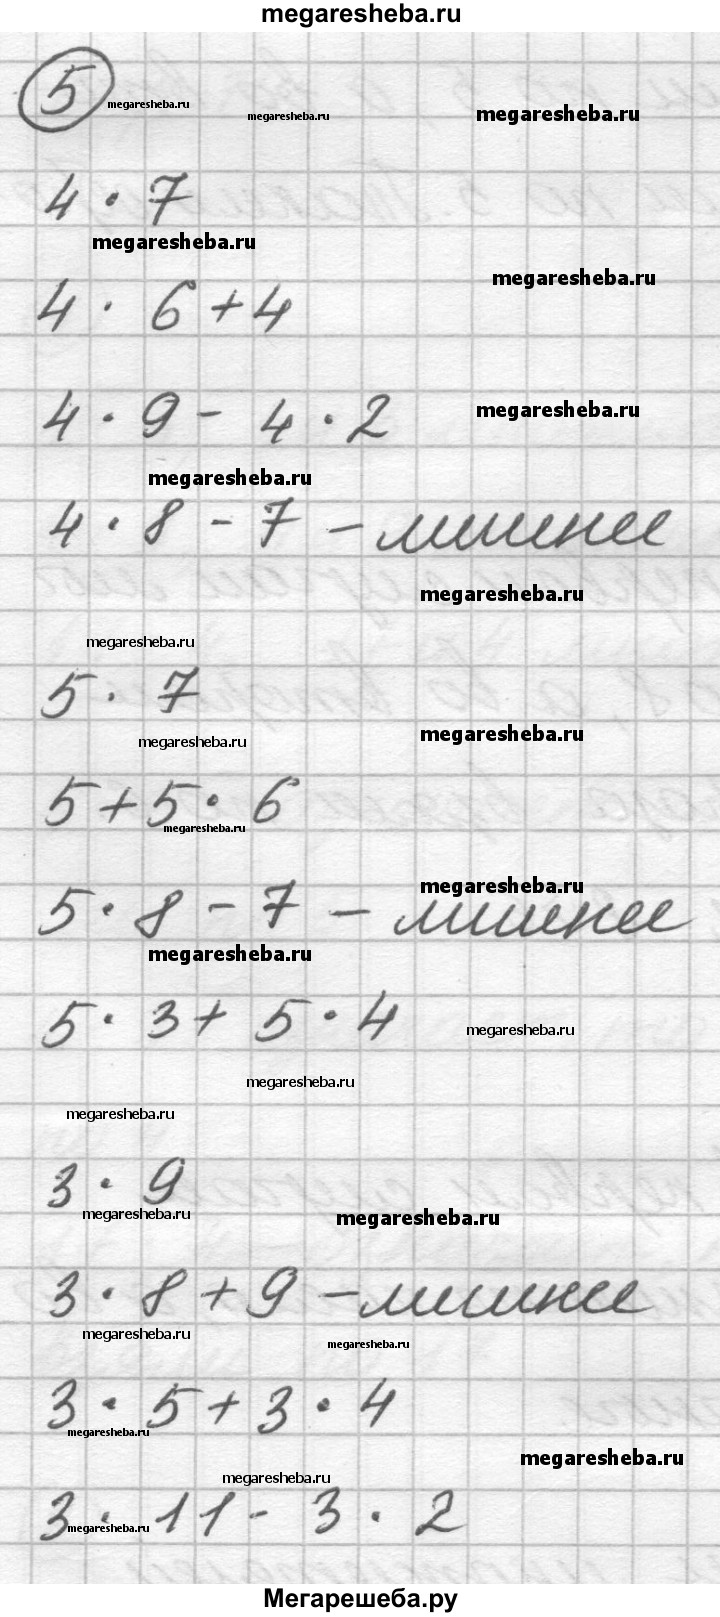 megaresheba.ru
5 megaresheba.ru megaresheba.ru megaresheba.ru
4 · 7
megaresheba.ru
megaresheba.ru
4 · 6 + 4
4 · 9 - 4 · 2 megaresheba.ru
megaresheba.ru
4 · 8 - 7 - лишнее
megaresheba.ru
megaresheba.ru
5 · 7
megaresheba.ru megaresheba.ru
5 + 5 · 6
megaresheba.ru
megaresheba.ru
5 · 8 - 7 - лишнее
megaresheba.ru
5 · 3 + 5 · 4 megaresheba.ru
megaresheba.ru
megaresheba.ru
3 · 9
megaresheba.ru megaresheba.ru
3 · 8 + 9 - лишнее
megaresheba.ru megaresheba.ru
3 · 5 + 3 · 4
megaresheba.ru
megaresheba.ru
megaresheba.ru
3 · 11 - 3 · 2
megaresheba.ru
Мегарешеба.ру